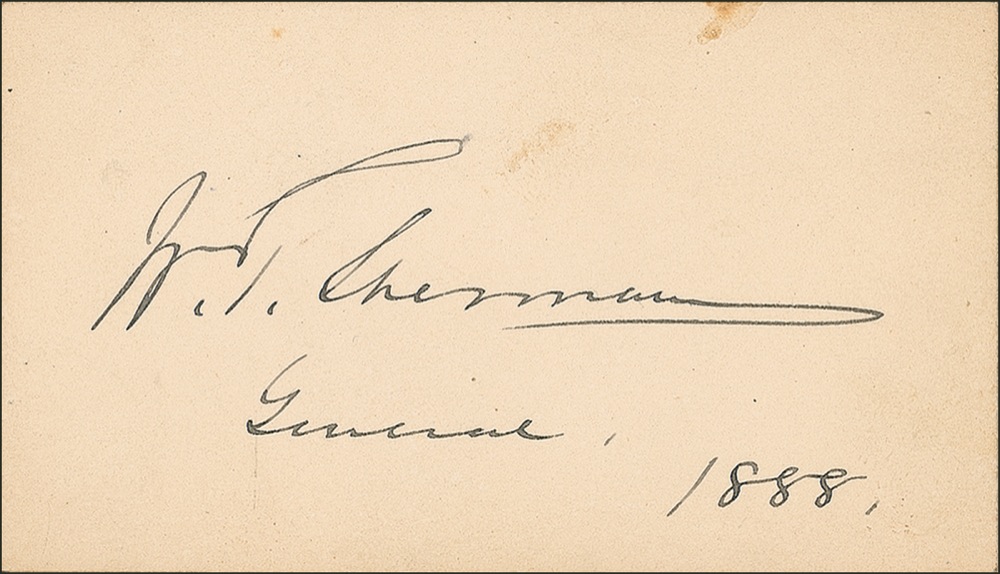 W. T. Sherman
General,
1888.